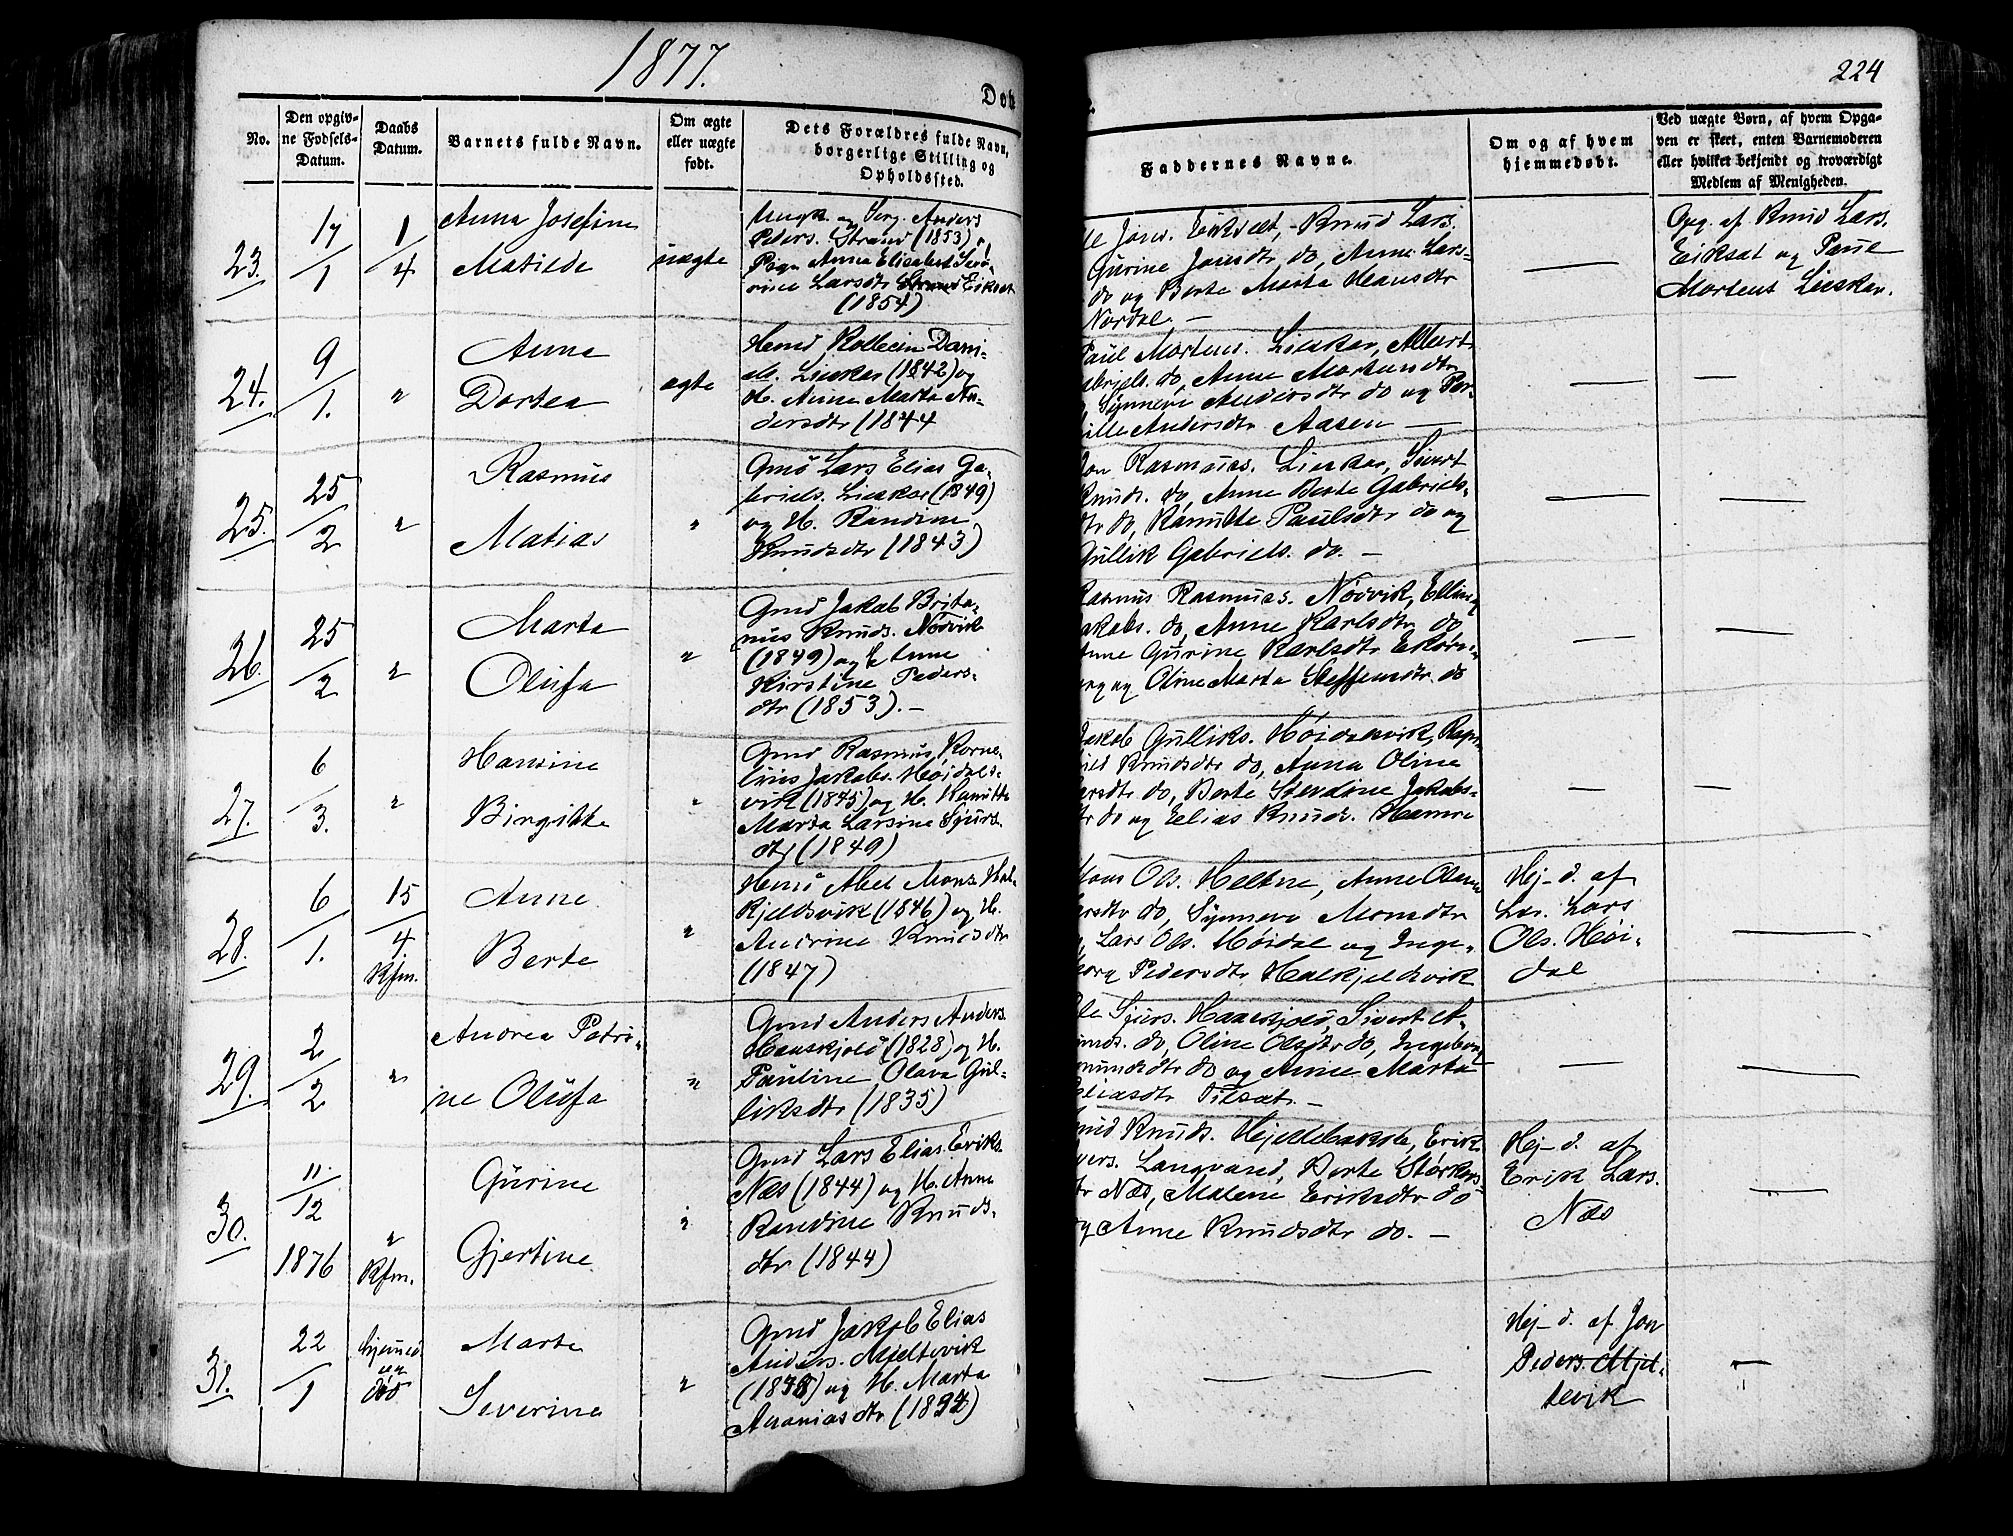 1877.
Dob
224
No.
Den opgiv-
ne Fødsels-
Datum.
Daabs
Datum.
Barnets fulde Navn.
Om ægte
eller uægte
født.
Dets Forældres fulde Navn,
borgerlige Stilling og
Opholdssted.
Faddernes Navne.
Om og af hvem
hjemmedøbt.
Ved uægte Børn, af hvem Opga-
ven er skeet, enten Barnemoderen
eller hvilket bekjendt og troværdigt
Medlem af Menigheden.
23.
17/1
1/4
Anna Josefine
Matilde
uægte
Ungk. og Serg. Anders
Peders. Strand (1853) o
Pige Anna Elisabet Seve-
rine Larsdtr Strand Eikset
(1854)
le Jons. Eikset, Knud Lars.
Gurine Jonsdtr do, Anne Lars-
do og Berte Marta Hansdtr
Nørdal. —
Opg. af Knud Lars.
Eikset og Paul
Mortens Lieskar.
24.
9/1.
"
Anna
Dortea
ægte
Hmd Kollein Dani-
els. Lieskar (1842) og
H. Anne Marta An-
dersdtr (1844
Paul Martens. Lieskar, Albert
abriels. do, Anne Martinsdtr
Synneve Andersdtr do og Per-
ille Andersdtr Aasen —
25.
25/2
"
Rasmus
Matias
"
Gmd Lars Elias Ga-
briels. Lieskar (1849)
og H. Randine
Knudsdtr (1843)
Jon Rasmus. Lieskar, Sivert
Knuds. do, Anne Berte Gabriels-
dtr do, Kanutte Paulsdtr do og
Gullik Gabriels. do. —
26.
25/2
"
Marta
Olufa
"
Gmd Jakob Brita-
nus Knuds. Nøvvik
(1849) og H. Anne
Kirstine Peders-
dtr (1853). —
Rasmus Rasmus. Nøvvik, Elling
akobs. do, Anne Karlsdtr do
nne Gurine Karlsdtr Ekorn-
org og Oline Marta Steffensdtr do
27.
6/3.
"
Hansine
Birgitte
"
Gmd Rasmus Korne-
lius Jakobs. Høidals-
vik (1845) og H. Kanutte
Marta Larsine Sjurs-
dtr (1849)
Jakob Gulliks. Høidalsvik, Rag-
Knudsdtr do, Anna Oline
arsdtr do, Berte Jakobs-
tr do og Elias Knuds. Hamre
28.
6/1.
15/4.
Kfm.
Anne
Berte
"
Hmd Abel Mons. Hal-
kjeldsvik (1846) og H.
Andrine Knudsdtr
(1847)
Hans Ols. Heltne, Anne
arsdtr do, Synneve Monsdtr
Lars Ols. Høidal og Inge-
borg Pedersdtr Halkjeldsvik
Hej-d. af
Lars
Ols. Høi-
dal
29.
2/2
"
Andrea Petri-
ne Olufa
"
Gmd Anders Anders.
Hauskjold (1828) og H.
Pauline Olava Gul-
liksdtr (1835)
le Sjurs. Hauskjold, Sivert A-
munds. do, Oline Olsdtr do, Ingeborg
mundsdtr do og Anne Marta
Eliasdtr —
30.
11./12
1876
"
Kfm.
Gurine
Gjertine
"
Gmd Lars Elias Eriks.
Næs (1844) og H. Anne
Randine Knuds-
dtr (1844)
Knuds. Hjellebakole, Erik
vers. Langvand, Berte Størkers-
tr Næs, Malene Eriksdtr do
og Anne Knudsdtr do. —
Hej-d. af
Erik Lars.
Næs
31.
22/1
hjemmed.
og
død
Marte
Severine
"
Gmd Jakob Elias
Anders. Mjeltevik
og H. Marta
Ananiasdtr
Hej-d. af Jon
Peders. Mjel-
tevik